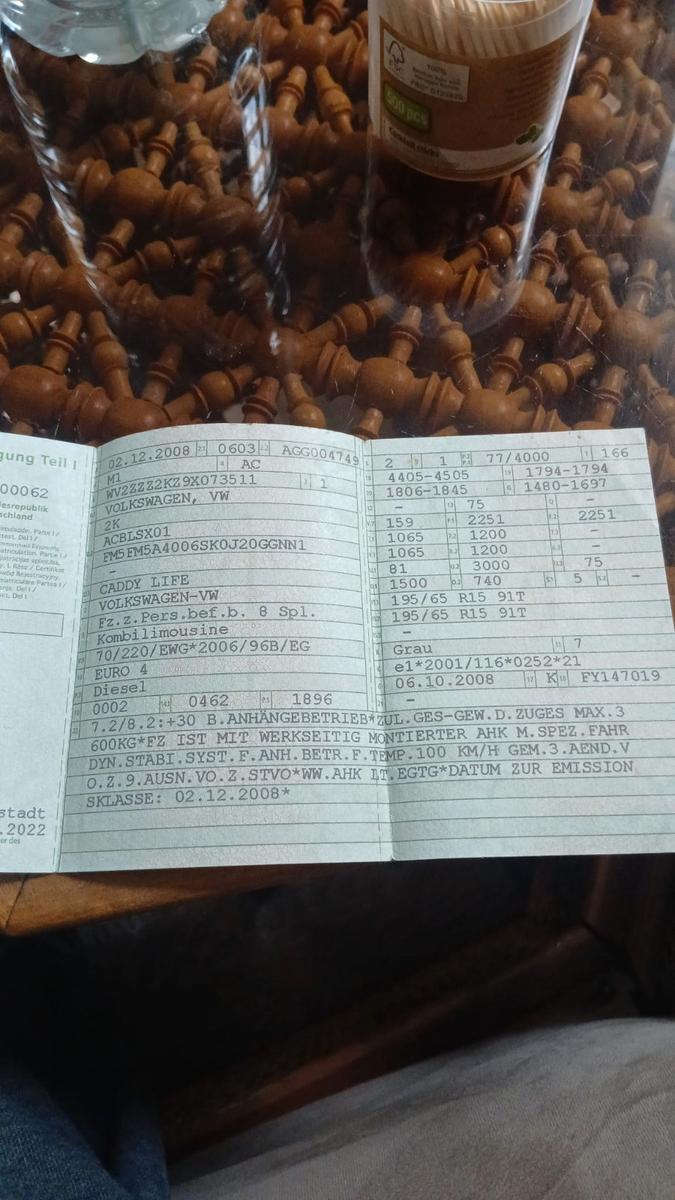 FSC
100%
500 pcs
Cocktail sticks
gung Teil I
00062
desrepublik
schland
stadt
.2022
02.12.2008 0603 AGG004749
M1 AC
WV2ZZZ2KZ9X073511 1
VOLKSWAGEN, VW
2K
ACBLSX01
FM5FM5A4006SK0J20GGNN1
-
CADDY LIFE
VOLKSWAGEN-VW
Fz.z.Pers.bef.b. 8 Spl.
Kombilimousine
70/220/EWG*2006/96B/EG
EURO 4
Diesel
0002 0462 1896
2 1 77/4000 166
4405-4505 1794-1794
1806-1845 1480-1697
- 75 -
159 2251 2251
1065 1200 -
1065 1200 -
81 3000 75
1500 740 5 -
195/65 R15 91T
195/65 R15 91T
-
Grau 7
e1*2001/116*0252*21
06.10.2008 K FY147019
-
7.2/8.2:+30 B.ANHÄNGEBETRIEB*ZUL.GES-GEW.D.ZUGES MAX.3
600KG*FZ IST MIT WERKSEITIG MONTIERTER AHK M.SPEZ.FAHR
DYN.STABI.SYST.F.ANH.BETR.F.TEMP.100 KM/H GEM.3.AEND.V
O.Z.9.AUSN.VO.Z.STVO*WW.AHK LT.EGTG*DATUM ZUR EMISSION
SKLASSE: 02.12.2008*